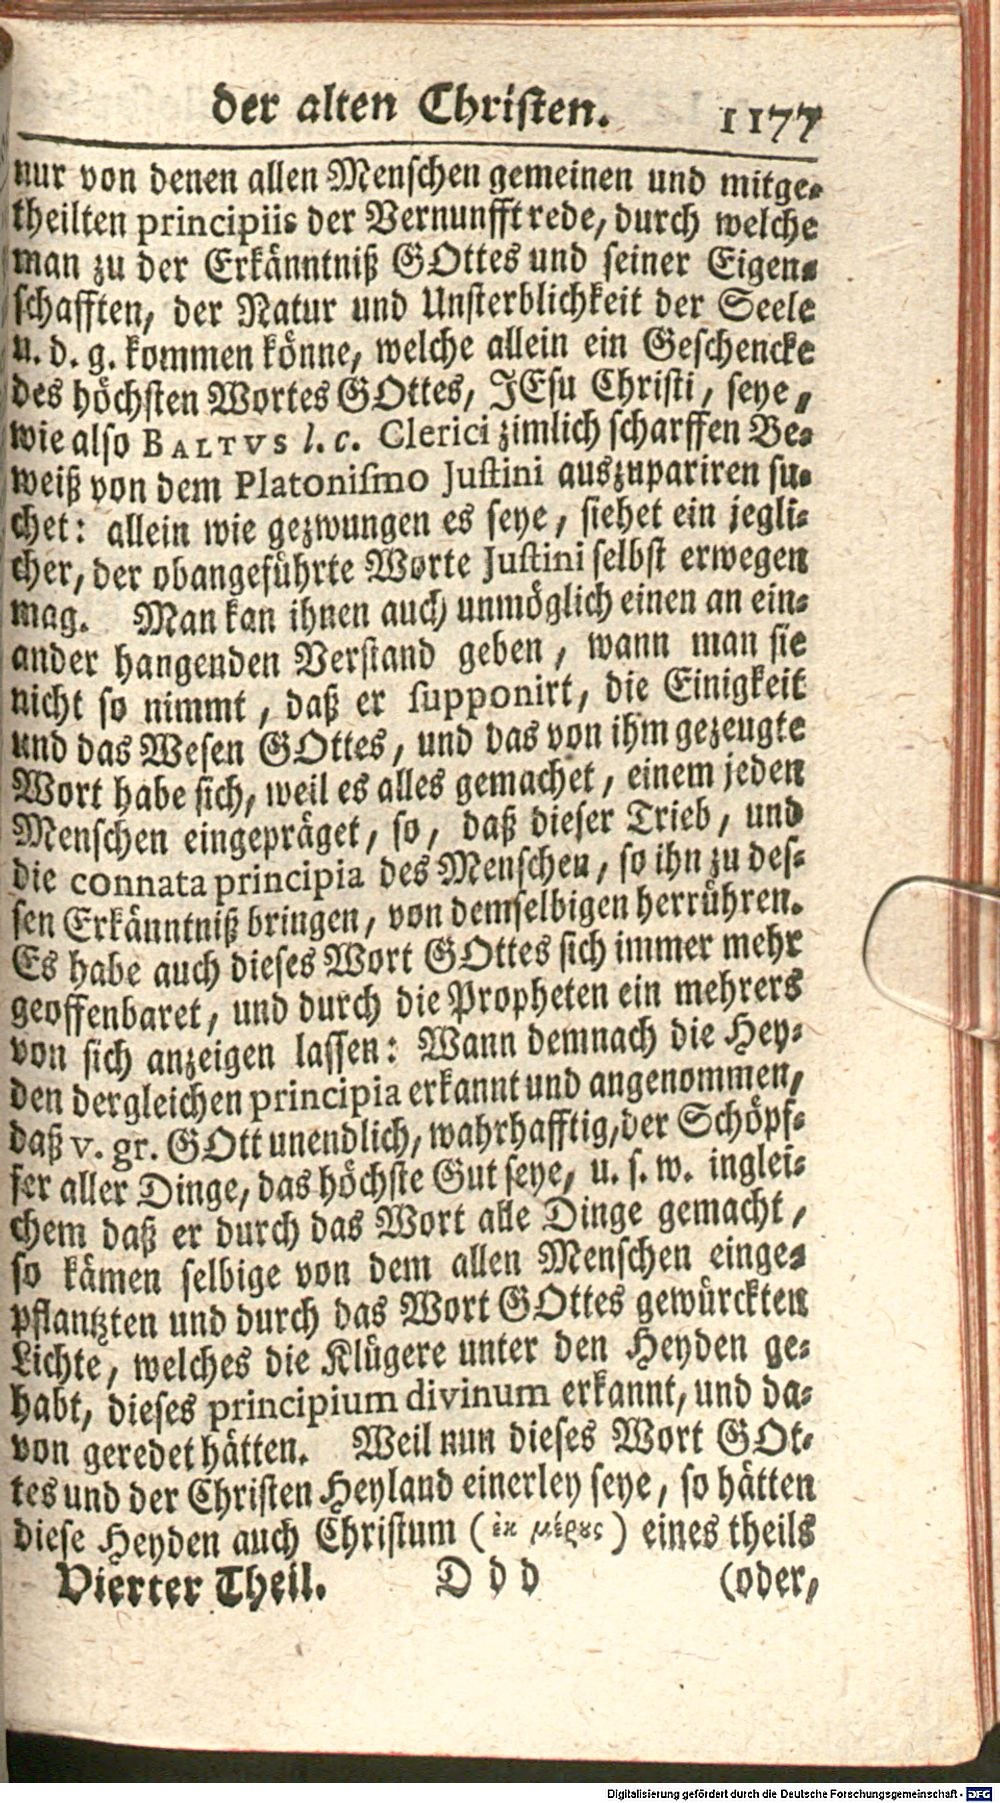 der alten Christen. 1177
nur von denen allen Menschen gemeinen und mitge-
theilten principiis der Vernunfft rede, durch welche
man zu der Erkänntniß GOttes und seiner Eigen-
schafften, der Natur und Unsterblichkeit der Seele
u. d. g. kommen könne, welche allein ein Geschencke
des höchsten Wortes GOttes, JEsu Christi, seye,
wie also BALTVS l. c. Clerici zimlich scharffen Be-
weiß von dem Platonismo Justini auszupariren su-
chet: allein wie gezwungen es seye, siehet ein jegli-
cher, der obangeführte Worte Justini selbst erwegen
mag. Man kan ihnen auch unmöglich einen an ein-
ander hangenden Verstand geben, wann man sie
nicht so nimmt, daß er supponirt, die Einigkeit
und das Wesen GOttes, und das von ihm gezeugte
Wort habe sich, weil es alles gemachet, einem jeden
Menschen eingepräget, so, daß dieser Trieb, und
die connata principia des Menschen, so ihn zu des-
sen Erkänntniß bringen, von demselbigen herrühren.
Es habe auch dieses Wort GOttes sich immer mehr
geoffenbaret, und durch die Propheten ein mehrers
von sich anzeigen lassen: Wann demnach die Hey-
den dergleichen principia erkannt und angenommen,
daß v. gr. GOtt unendlich, wahrhafftig, der Schöpf-
fer aller Dinge, das höchste Gut seye, u. s. w. inglei-
chem daß er durch das Wort alle Dinge gemacht,
so kämen selbige von dem allen Menschen einge-
pflantzten und durch das Wort GOttes gewürckten
Lichte, welches die Klügere unter den Heyden ge-
habt, dieses principium divinum erkannt, und da-
von geredet hätten. Weil nun dieses Wort GOt-
tes und der Christen Heyland einerley seye, so hätten
diese Heyden auch Christum (ἐκ μέρους) eines theils
Vierter Theil. D d d (oder,
Digitalisierung gefördert durch die Deutsche Forschungsgemeinschaft - DFG